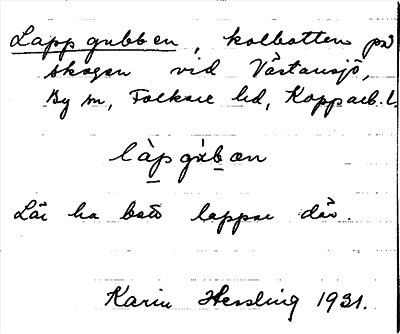 Lappgubben, kolbotten på
skogen vid Västansjö,
By sn, Folkare hd, Kopparb. l.
làpgúbən
Lär ha bott lappar där.
Karin Hessling 1931.